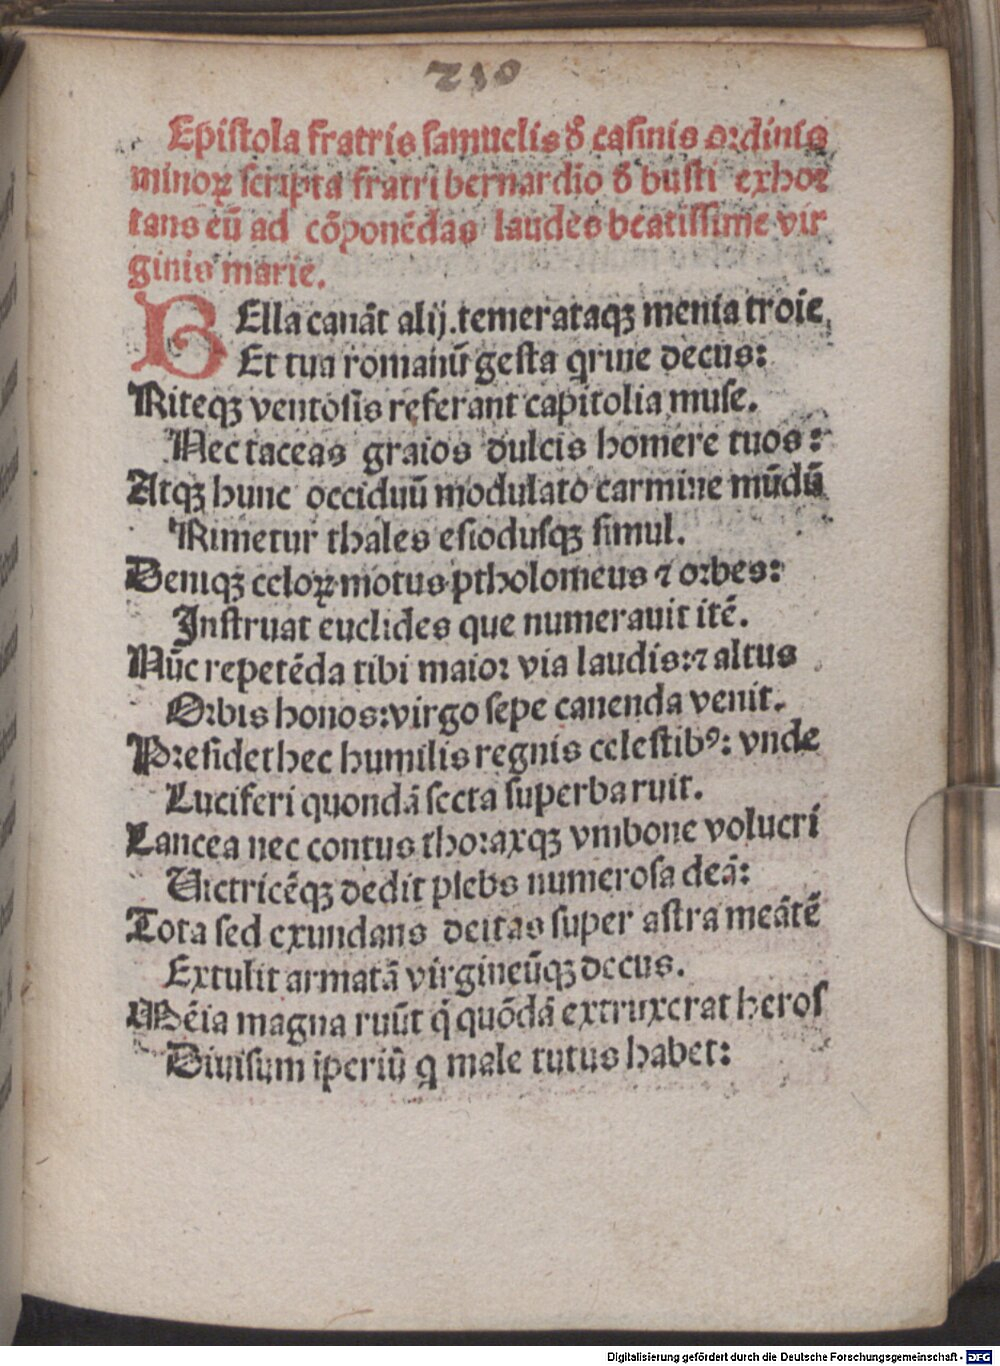 210
Epistola fratris samuelis đ casinis ordinis
minoꝝ scripta fratri bernardio đ busti exhor
tans eū ad cōponēdas laudes beatissime vir
ginis marie.
BElla canāt alij.temerataqꝫ menia troie,
Et tua romanū gesta qrine decus:
Riteqꝫ ventosis referant capitolia muse.
Nec taceas graios dulcis homere tuos:
Atqꝫ hunc occiduū modulato carmine mūdū
Rimetur thales esiodusqꝫ simul.
Deniqꝫ celoꝝ motus ptholomeus ⁊ orbes:
Instruat euclides que numerauit itē.
Nūc repetēda tibi maior via laudis:⁊ altus
Orbis honos:virgo sepe canenda venit.
Presidet hec humilis regnis celestibꝰ: vnde
Luciferi quondā secta superba ruit.
Lancea nec contus thoraxqꝫ vmbone volucri
Uictricēqꝫ dedit plebs numerosa deā:
Tota sed exundans deitas super astra meātē
Extulit armatā virgineūqꝫ decus.
Mēia magna ruūt q̄ quōdā extruxerat heros
Diuisum iperiū q male tutus habet:
Digitalisierung gefördert durch die Deutsche Forschungsgemeinschaft - DFG